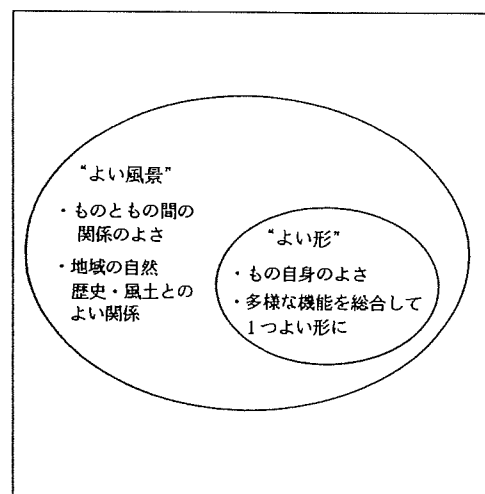 “よい風景”
・ものともの間の
関係のよさ
・地域の自然
歴史・風土との
よい関係
“よい形”
・もの自身のよさ
・多様な機能を総合して
1つよい形に